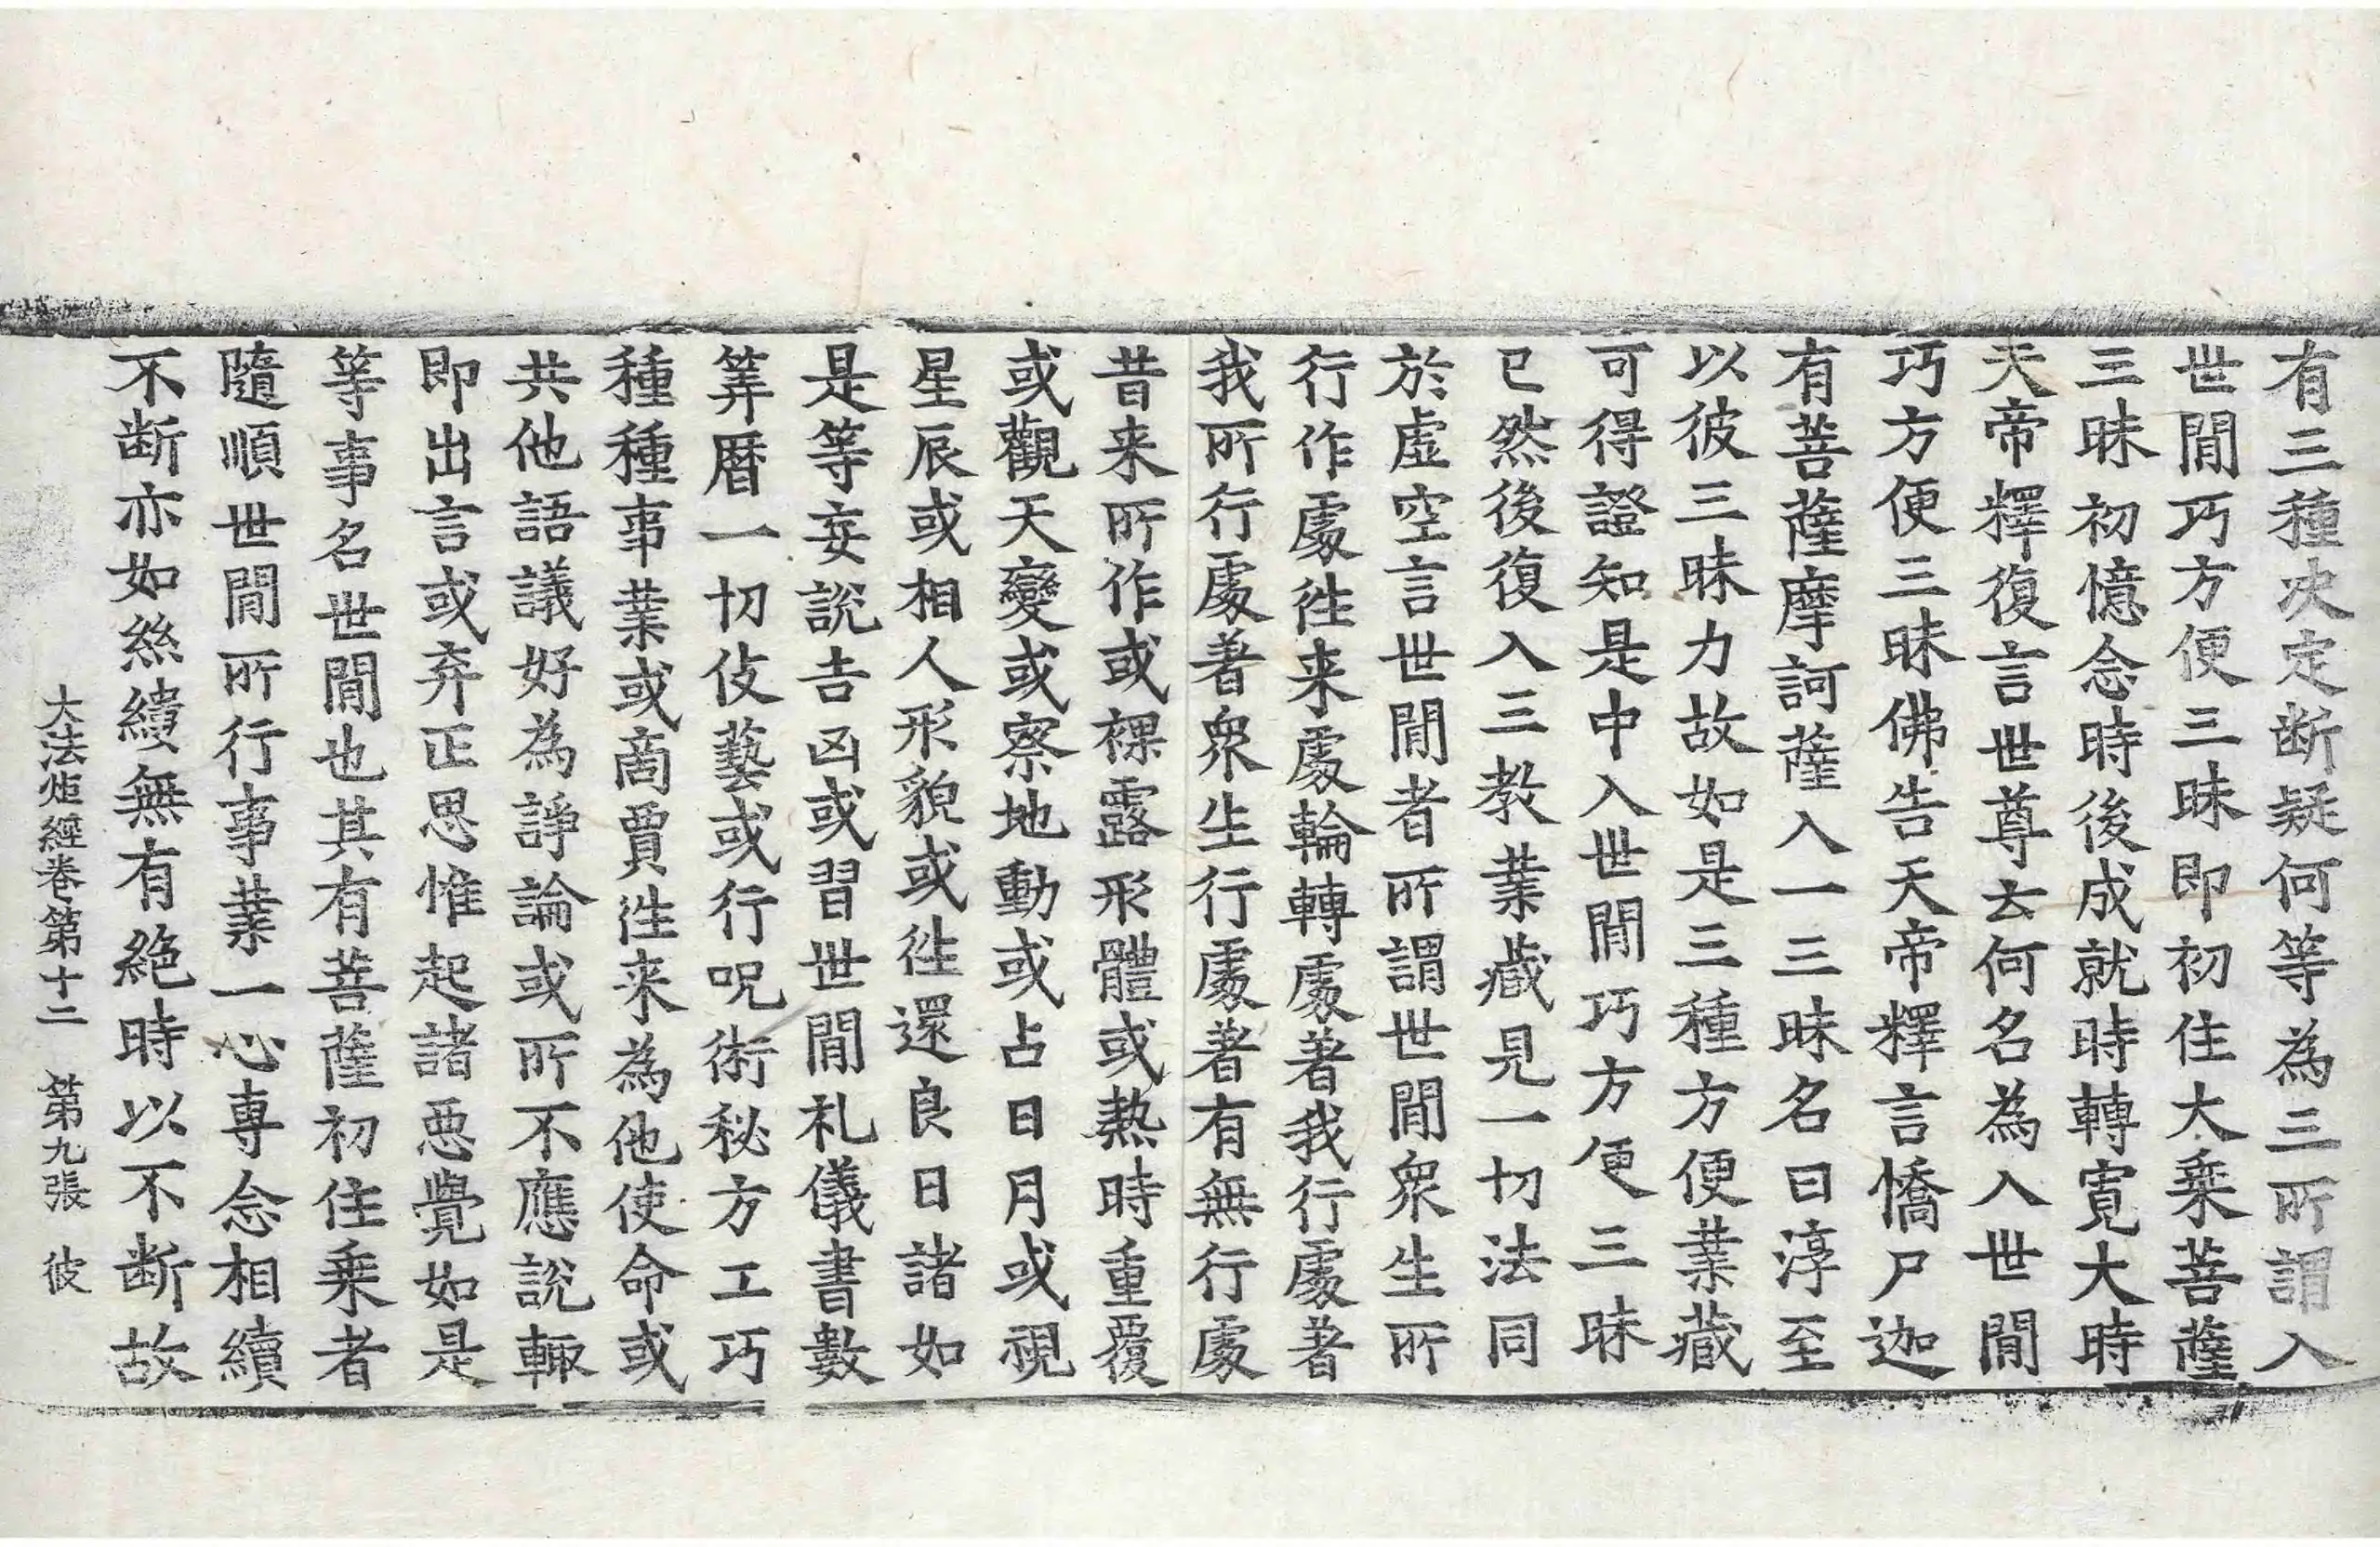 有三種决定断疑何等為三所謂入
世閒巧方便三昧即初住大乗菩薩
三昧初憶念時後成就時轉寛大時
天帝釋復言世尊云何名為入世閒
巧方便三昧佛告天帝釋言憍尸迦
有菩薩摩訶薩入一三昧名曰淳至
以彼三昧力故如是三種方便業藏
可得證知是中入世閒巧方便三昧
已然後復入三教業藏見一切法同
於虛空言世閒者所謂世閒衆生所
行作處徃来處輪轉處著我行處著
我所行處著衆生行處著有無行處
昔来所作或裸露形體或熱時重覆
或觀天變或察地動或占日月或視
星辰或相人形貌或徃還良日諸如
是等妄說吉凶或習世閒札儀書數
筭曆一切伎藝或行呪術秘方工巧
種種事業或啇賈徃来為他使命或
共他語議好為諍論或所不應說輙
即出言或弃正思惟起諸惡覺如是
等事名世閒也其有菩薩初住乗者
隨順世閒所行事業一心專念相續
不断亦如絲纊無有絶時以不断故
大法炬經卷第十二　第九張　彼